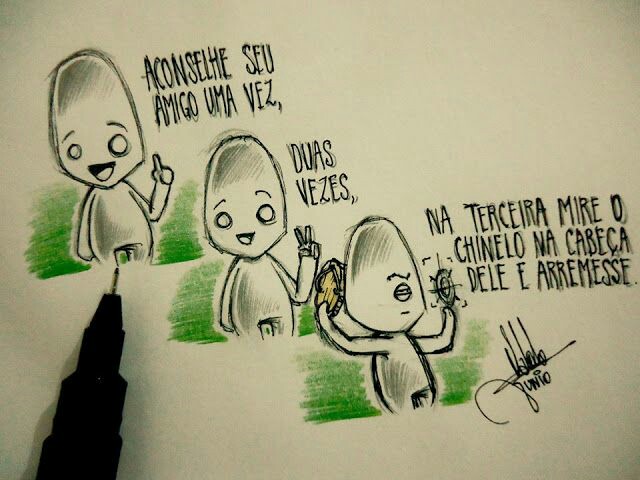 ACONSELHE SEU
AMIGO UMA VEZ,
DUAS
VEZES,,
NA TERCEIRA MIRE O
CHINELO NA CABEÇA
DELE E ARREMESSE.
Junio